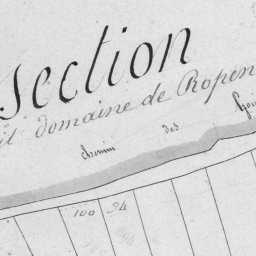 Section
domaine de Ropen
chemin des
100 94